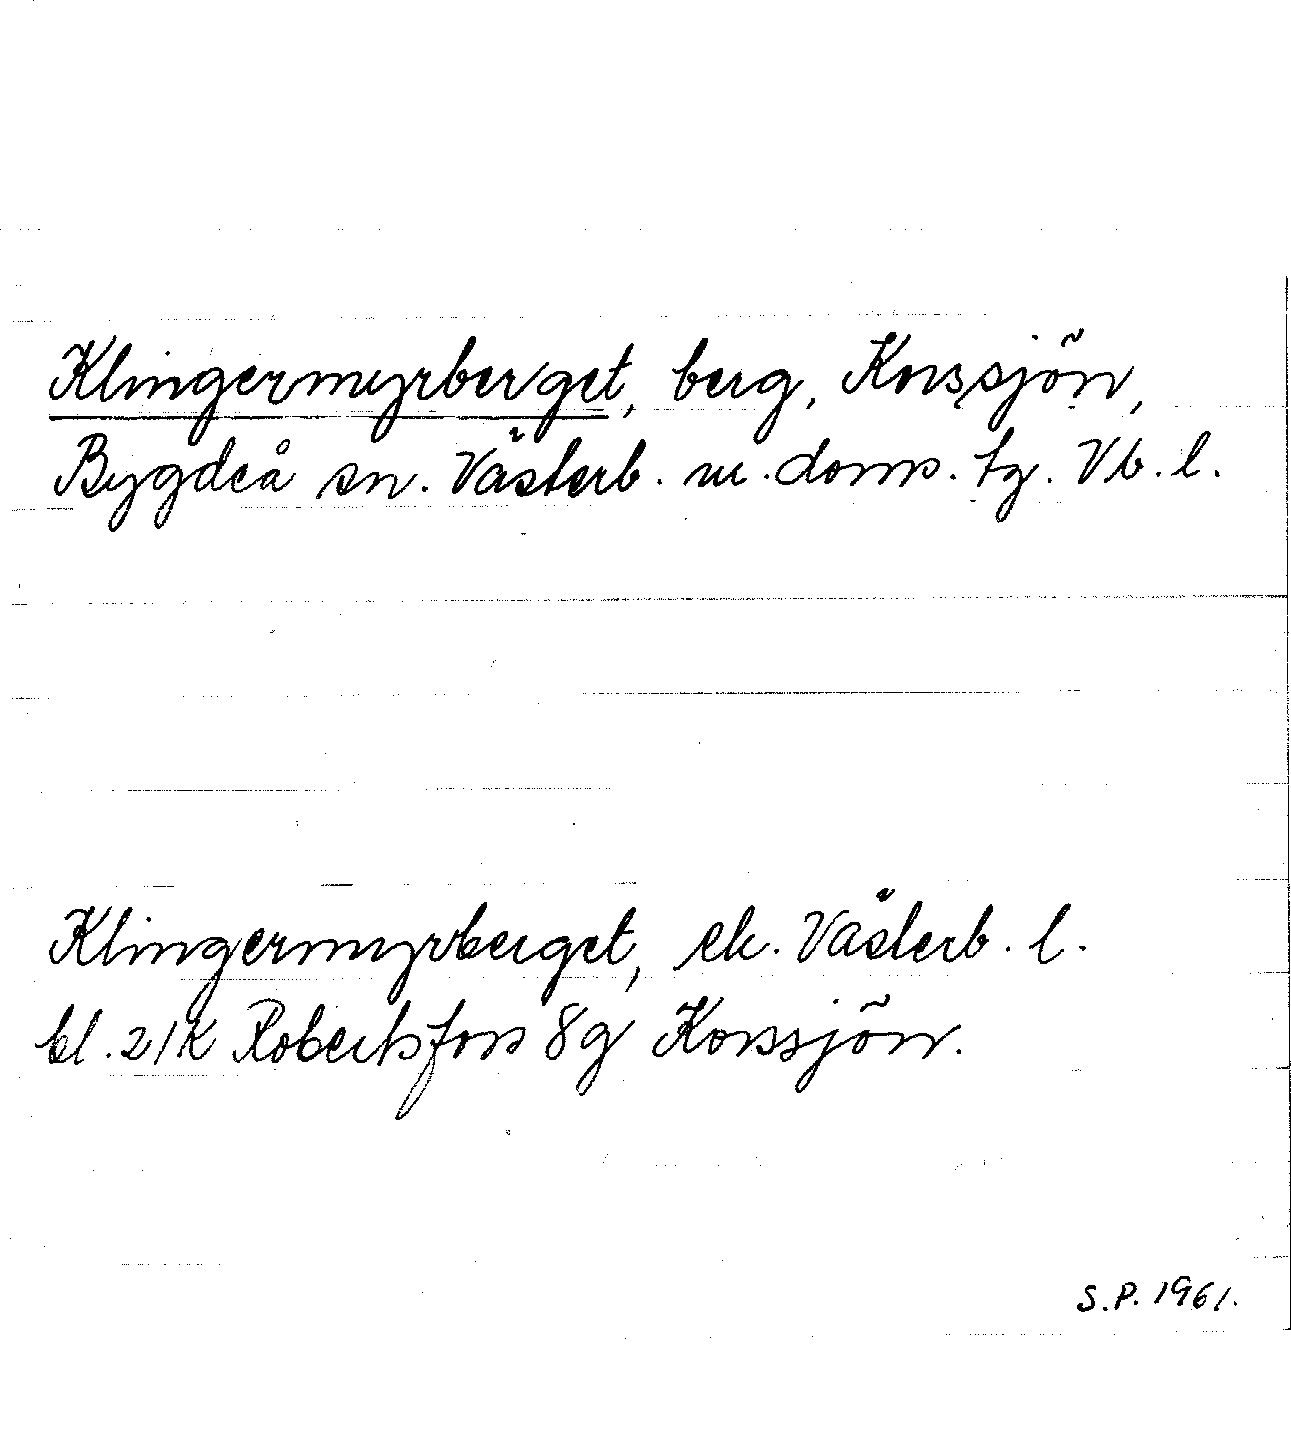 Klingermyrberget, berg, Korssjön,
Bygdeå sn. Västerb. m. doms. tg. Vb. l.
Klingermyrberget, ek. Västerb. l.
bl. 21K Robertsfors 8g Korssjön.
S.P. 1961.